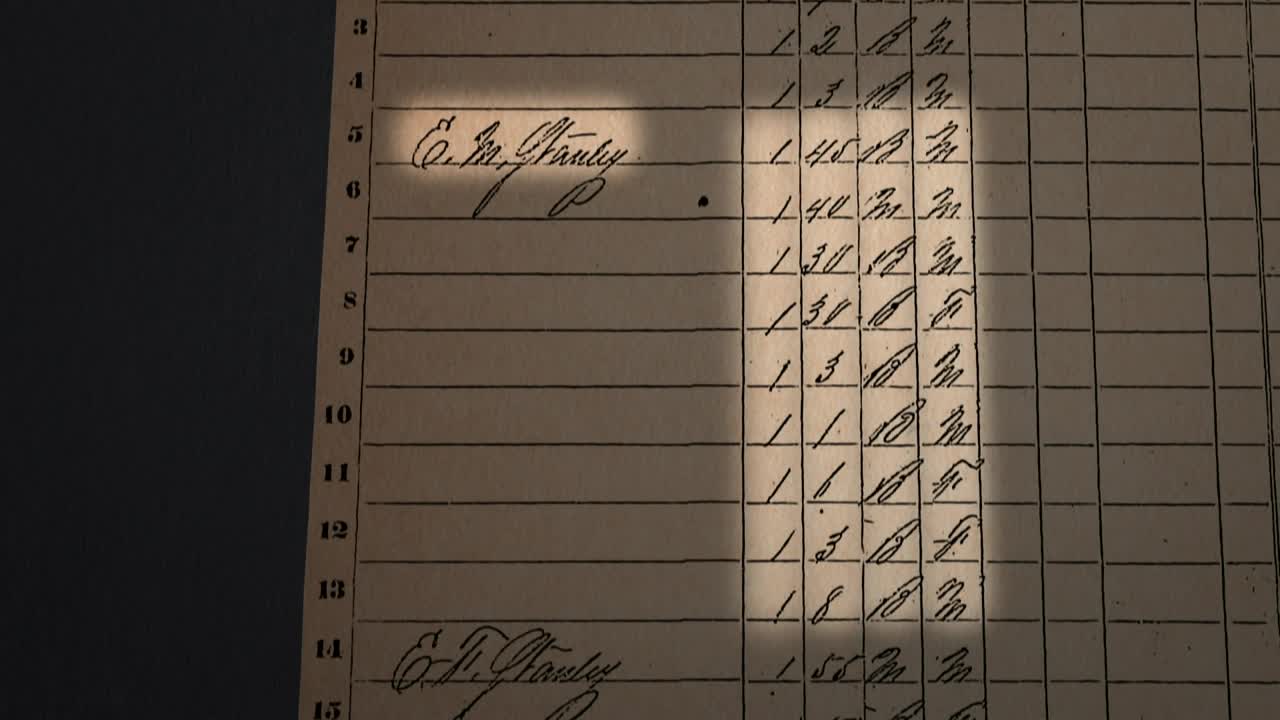 3 1 2 B M
4 1 3 B M
5 E. M. Stanley 1 45 B M
6 1 40 M M
7 1 30 B M
8 1 30 B F
9 1 3 B M
10 1 1 B M
11 1 6 B F
12 1 3 B F
13 1 8 B M
14 E. F. Stanley 1 55 M M
15